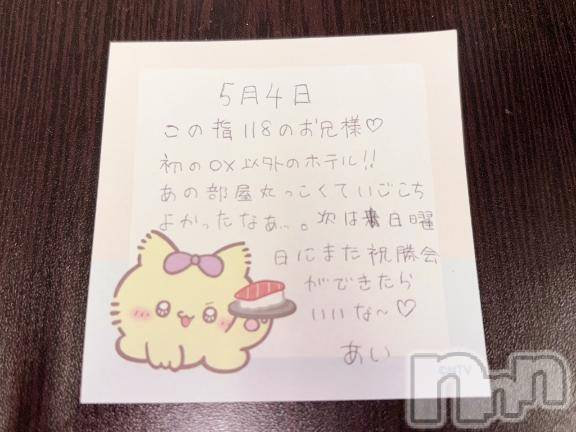 5月4日
この指118のお兄様♡
初のOX以外のホテル!!
あの部屋丸っこくていごこち
よかったなぁ…。次は日曜
日にまた祝勝会
ができたら
いいな~♡
あい
©NTV
nnn